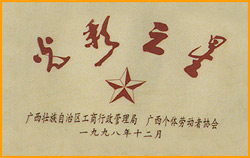 光彩之星
广西壮族自治区工商行政管理局 广西个体劳动者协会
一九九八年十二月